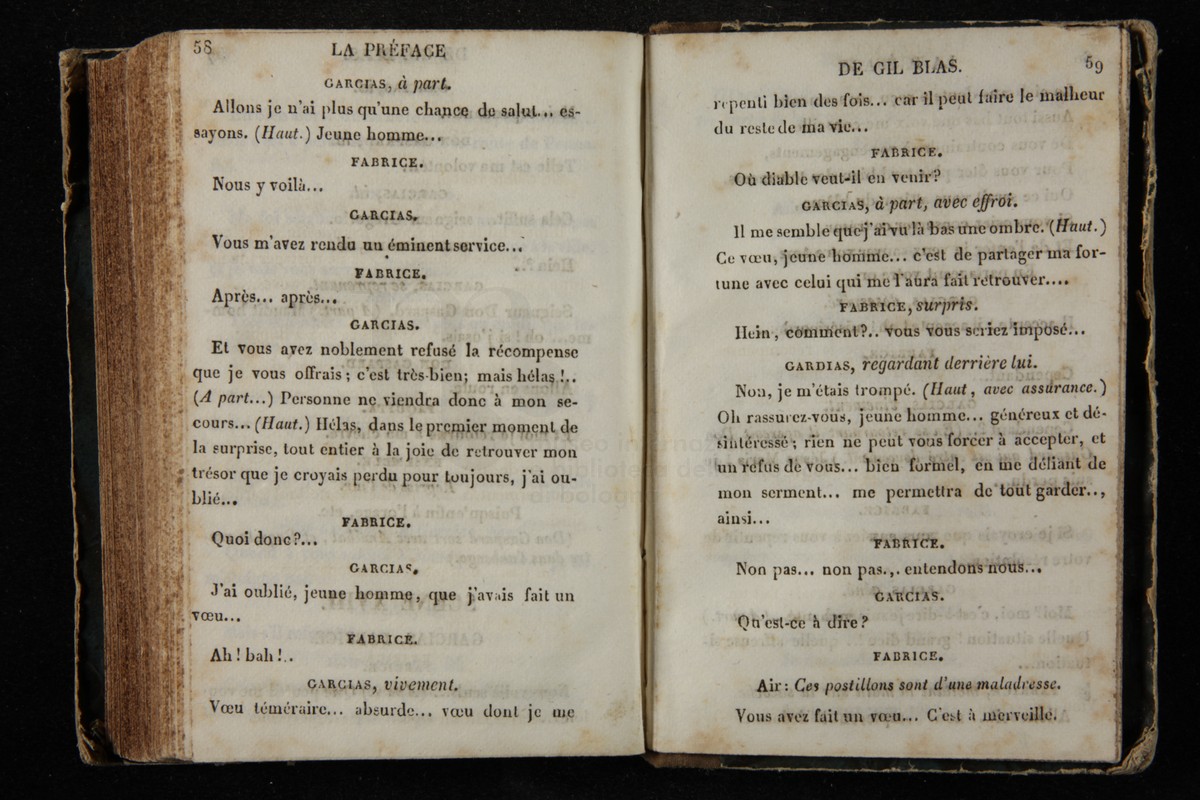 58
LA PRÉFACE
GARCIAS, à part.
Allons je n'ai plus qu'une chance de salut... es-
sayons. (Haut.) Jeune homme...
FABRICE.
Nous y voilà...
GARCIAS.
Vous m'avez rendu un éminent service...
FABRICE.
Après... après...
GARCIAS.
Et vous avez noblement refusé la récompense
que je vous offrais; c'est très-bien; mais hélas!..
(A part...) Personne ne viendra donc à mon se-
cours... (Haut.) Hélas, dans le premier moment de
la surprise, tout entier à la joie de retrouver mon
trésor que je croyais perdu pour toujours, j'ai ou-
blié...
FABRICE.
Quoi donc?...
GARCIAS.
J'ai oublié, jeune homme, que j'avais fait un
vœu...
FABRICE.
Ah! bah!..
GARCIAS, vivement.
Vœu téméraire... absurde... vœu dont je me
DE GIL BLAS.
59
repenti bien des fois... car il peut faire le malheur
du reste de ma vie...
FABRICE.
Où diable veut-il en venir?
GARCIAS, à part, avec effroi.
Il me semble que j'ai vu là bas une ombre. (Haut.)
Ce vœu, jeune homme... c'est de partager ma for-
tune avec celui qui me l'aura fait retrouver....
FABRICE, surpris.
Hein, comment?.. vous vous seriez imposé...
GARDIAS, regardant derrière lui.
Non, je m'étais trompé. (Haut, avec assurance.)
Oh rassurez-vous, jeune homme... généreux et dé-
sintéressé; rien ne peut vous forcer à accepter, et
un refus de vous... bien formel, en me déliant de
mon serment... me permettra de tout garder..,
ainsi...
FABRICE.
Non pas... non pas.,. entendons nous...
GARCIAS.
Qu'est-ce à dire?
FABRICE.
Air: Ces postillons sont d'une maladresse.
Vous avez fait un vœu... C'est à merveille.